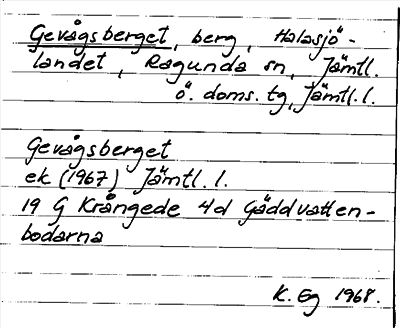 Gevågsberget, berg, Halasjö-
landet, Ragunda sn, Jämtl.
ö. doms. tg, Jämtl. l.
Gevågsberget
ek (1967) Jämtl. l.
19 G Krångede 4d Gäddvatten-
bodarna
K. Eg 1968.